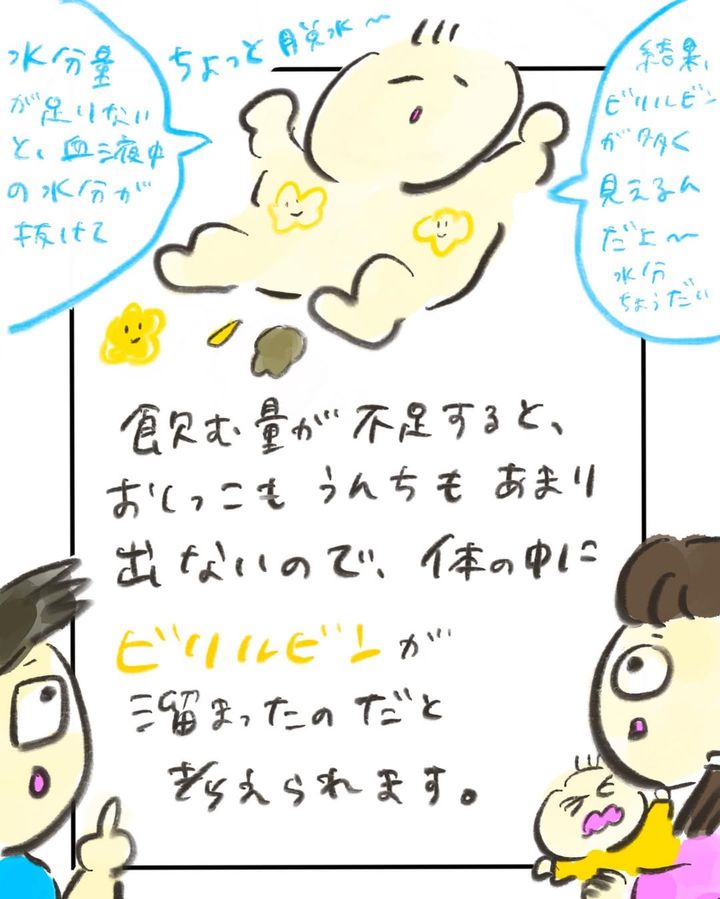 ちょっと脱水〜
水分量
が足りない
と、血液中
の水分が
抜けて
結果、
ビリルビン
が多く
見えるん
だよ〜
水分
ちょうだい
飲む量が不足すると、
おしっこもうんちもあまり
出ないので、体の中に
ビリルビンが
溜まったのだと
考えられます。